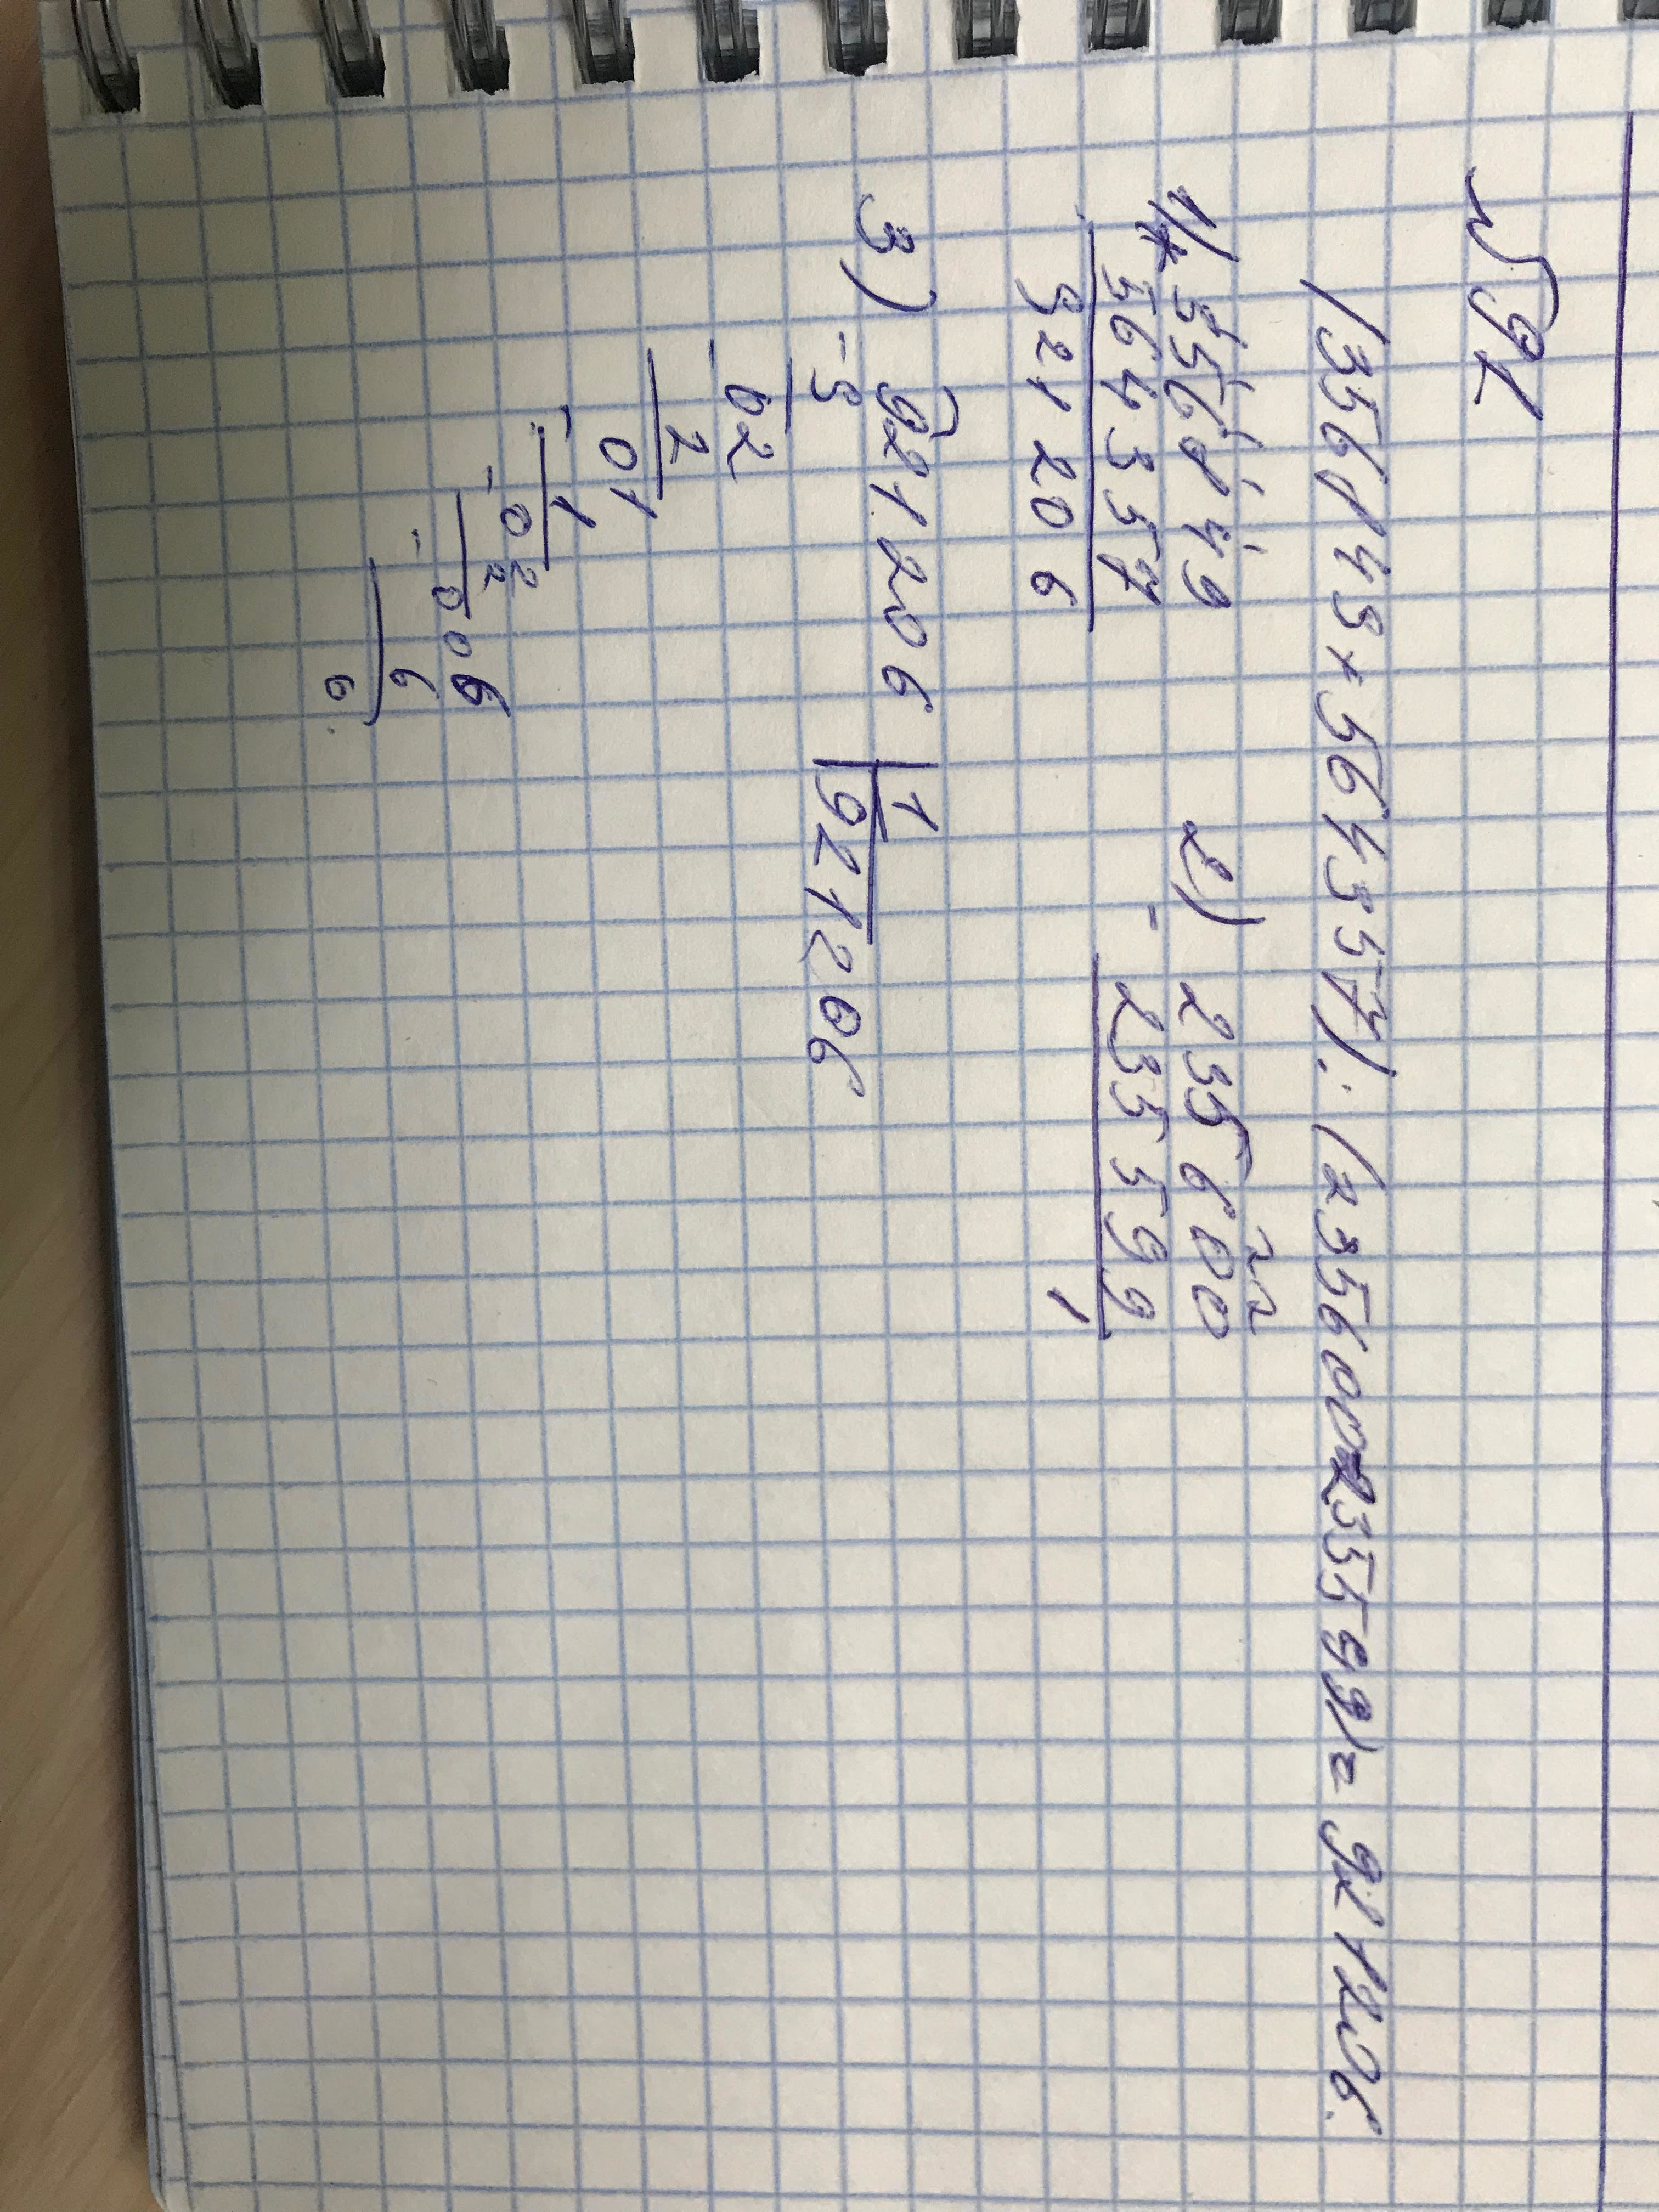 № 92
(356849+564357):(235600-235599)=921206.
1) 356849 2) 235600
+ 564357 - 235599
921206 1
3) 921206 | 1
- 9 921206
02
- 2
01
- 1
02
- 2
006
- 6
0.